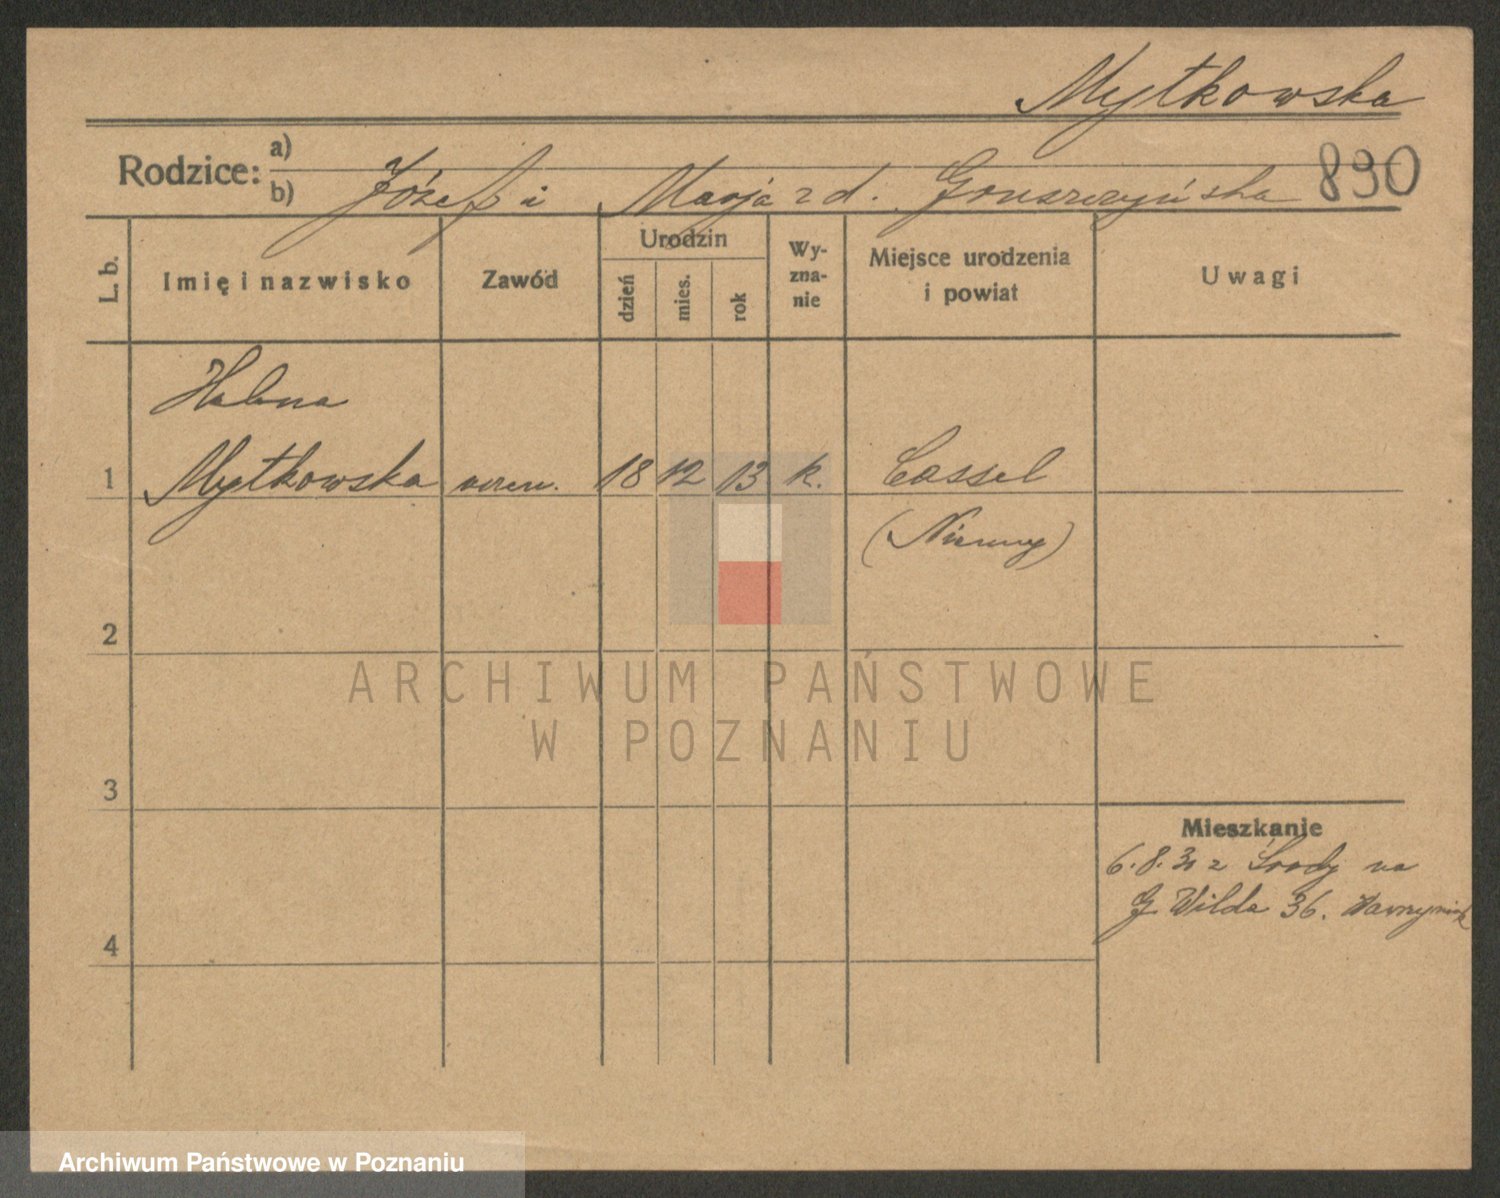 Mytkowska
Rodzice: a)
b) Józef i Marja z d. Gruszczyńska 890
L. b. Imię i nazwisko Zawód Urodzin dzień mies. rok Wy-zna-nie Miejsce urodzenia i powiat Uwagi
Halina
1 Mytkowska uczen. 18 12 13 k. Cassel
(Niemcy)
2
ARCHIWUM PAŃSTWOWE
W POZNANIU
3
Mieszkanie
6.8.30 z Środy na
G. Wilda 36.
4
Archiwum Państwowe w Poznaniu